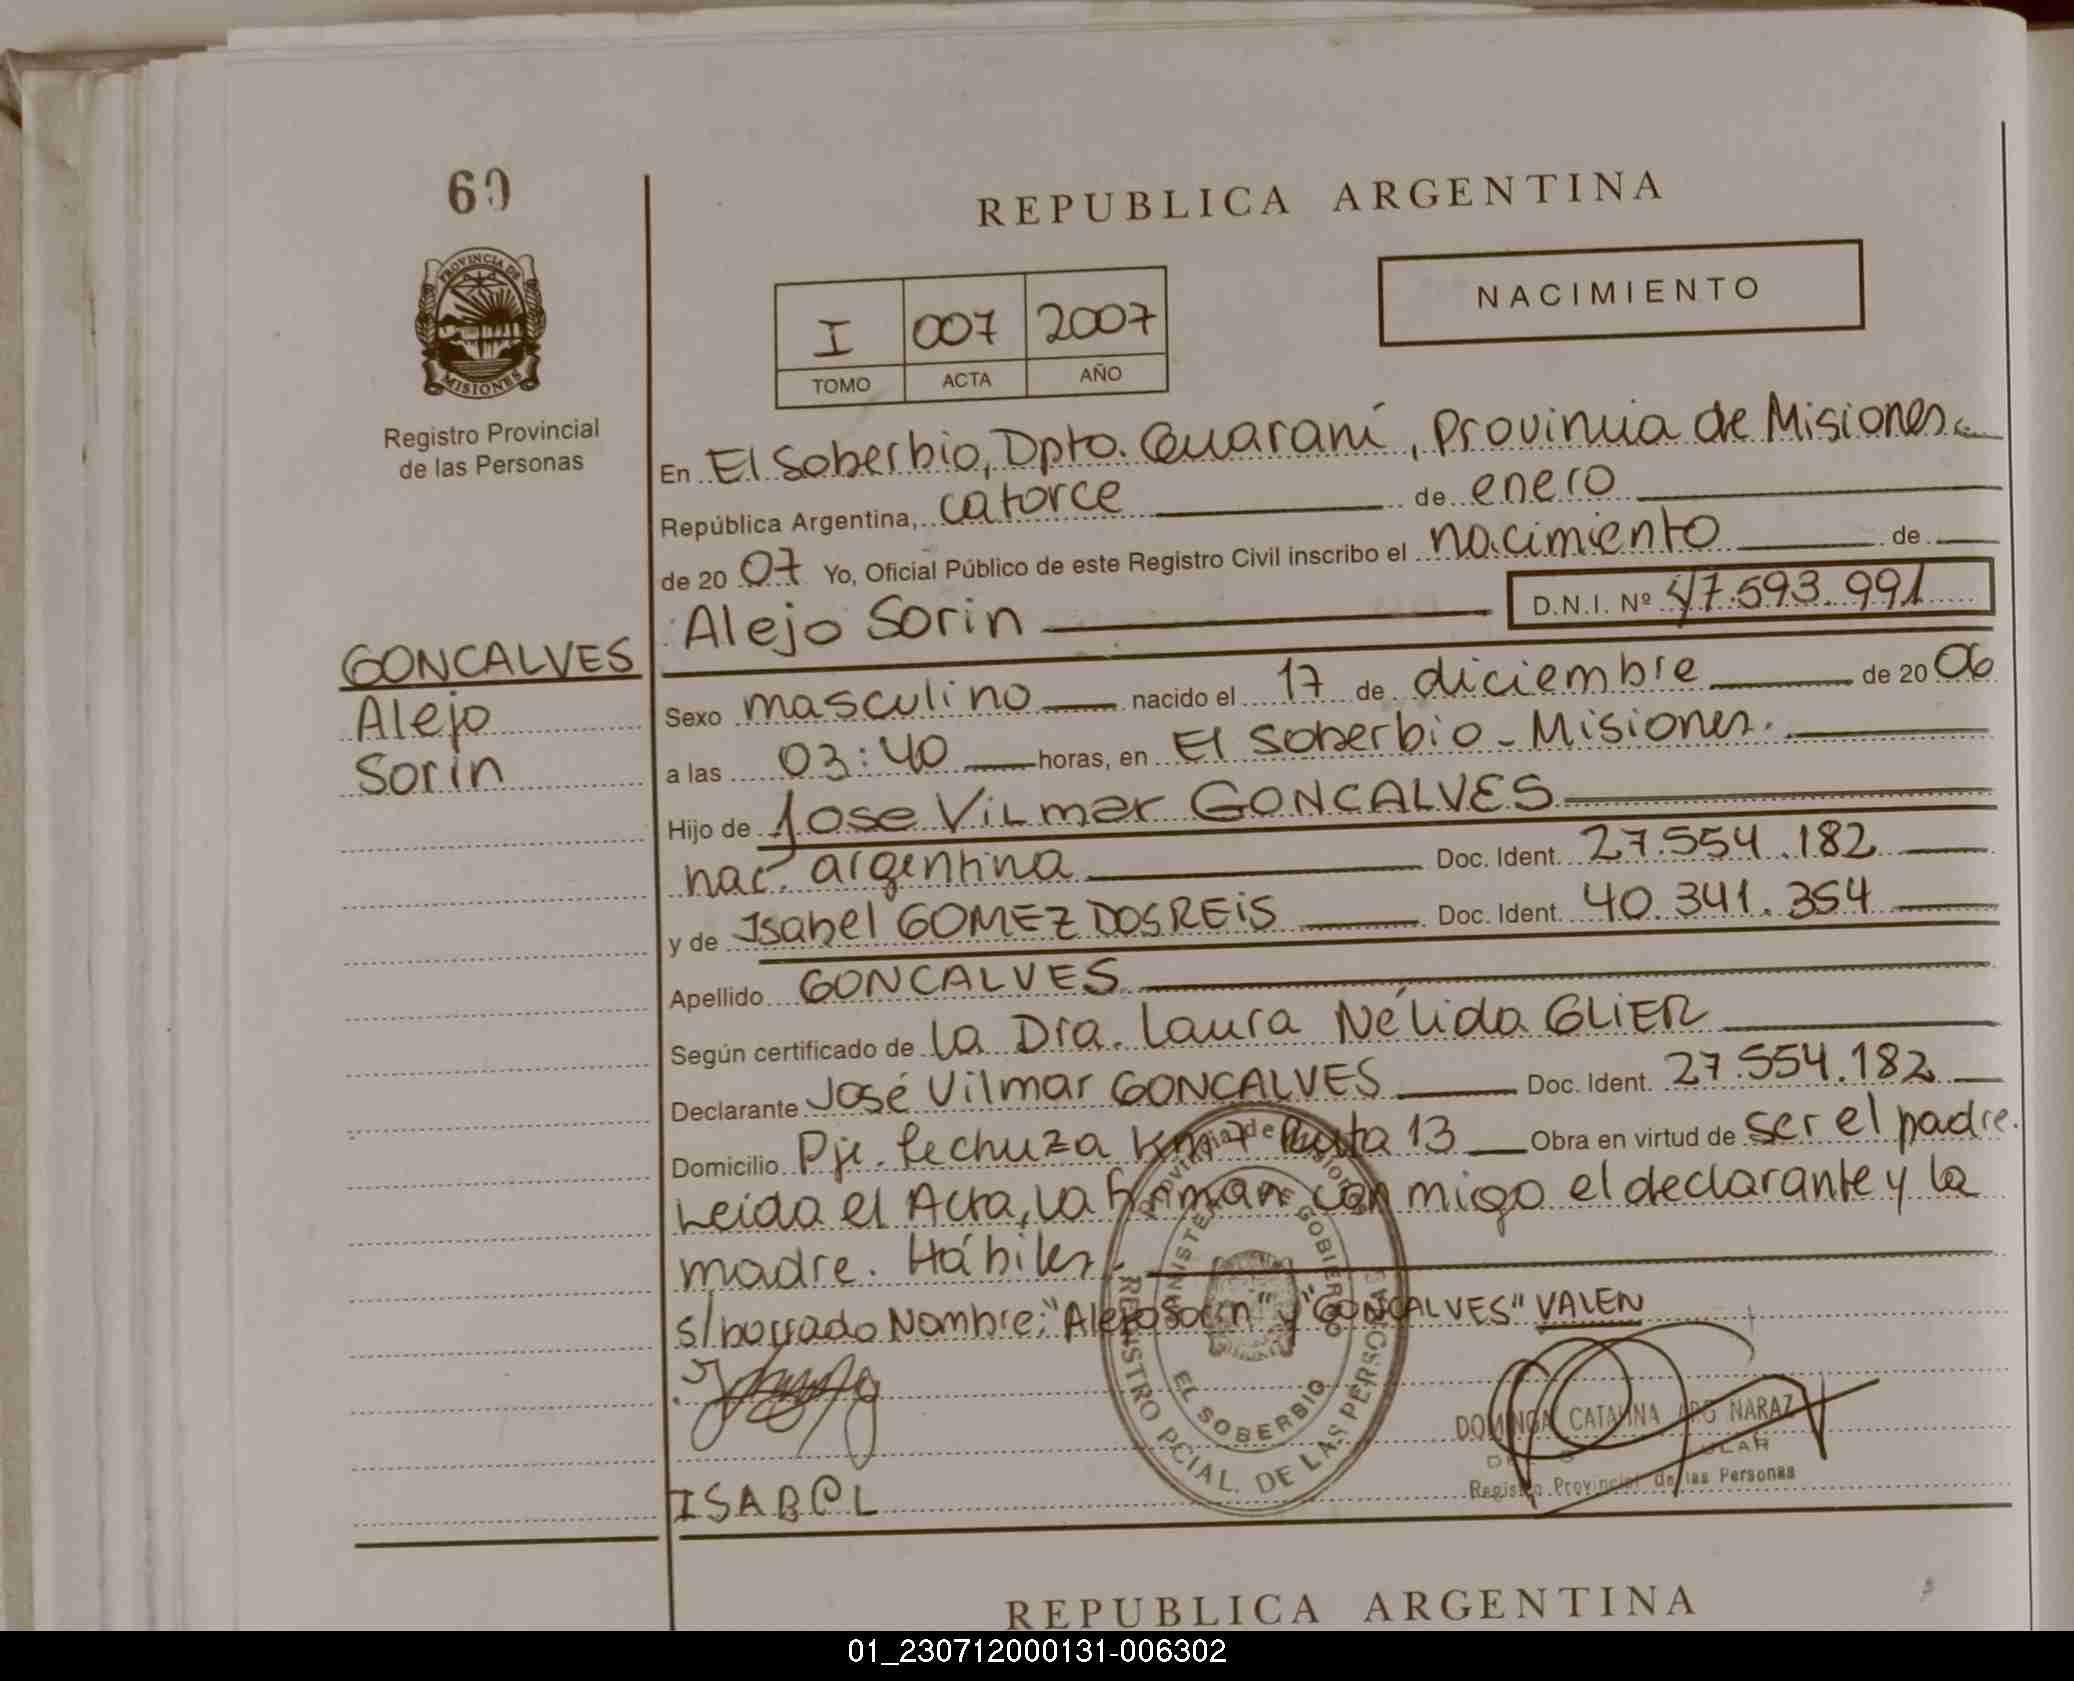 60
REPUBLICA ARGENTINA
PROVINCIA DE
MISIONES
Registro Provincial
de las Personas
I 007 2007
TOMO ACTA AÑO
NACIMIENTO
En El Soberbio, Dpto. Guaraní, Provincia de Misiones
República Argentina, catorce de enero
de 20 07 Yo, Oficial Público de este Registro Civil inscribo el nacimiento de
Alejo Sorin D.N.I. Nº 47.593.991
GONCALVES
Alejo
Sorin
Sexo masculino nacido el 17 de diciembre de 20 06
a las 03:40 horas, en El Soberbio - Misiones.
Hijo de Jose Vilmar GONCALVES
nac. argentina Doc. Ident. 27.554.182
y de Isabel GOMEZ DOS REIS Doc. Ident. 40.341.354
Apellido GONCALVES
Según certificado de la Dra. Laura Nélida GLIER
Declarante José Vilmar GONCALVES Doc. Ident. 27.554.182
Domicilio Pje. Lechuza Km 7 Ruta 13 Obra en virtud de ser el padre.
Leida el Acta, la firman conmigo el declarante y la
madre. Hábiles.
s/borrado Nombre: "Alejo Sorin" y "GONCALVES" VALEN
Provincia de Misiones
MINISTERIO DE GOBIERNO
EL SOBERBIO
REGISTRO PCIAL. DE LAS PERSONAS
DOMINGA CATALINA
Registro Provincial de las Personas
ISABEL
REPUBLICA ARGENTINA
01_230712000131-006302